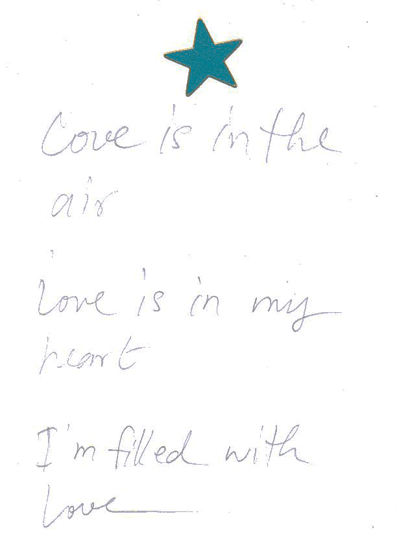 Love is in the
air
Love is in my
heart
I'm filled with
Love